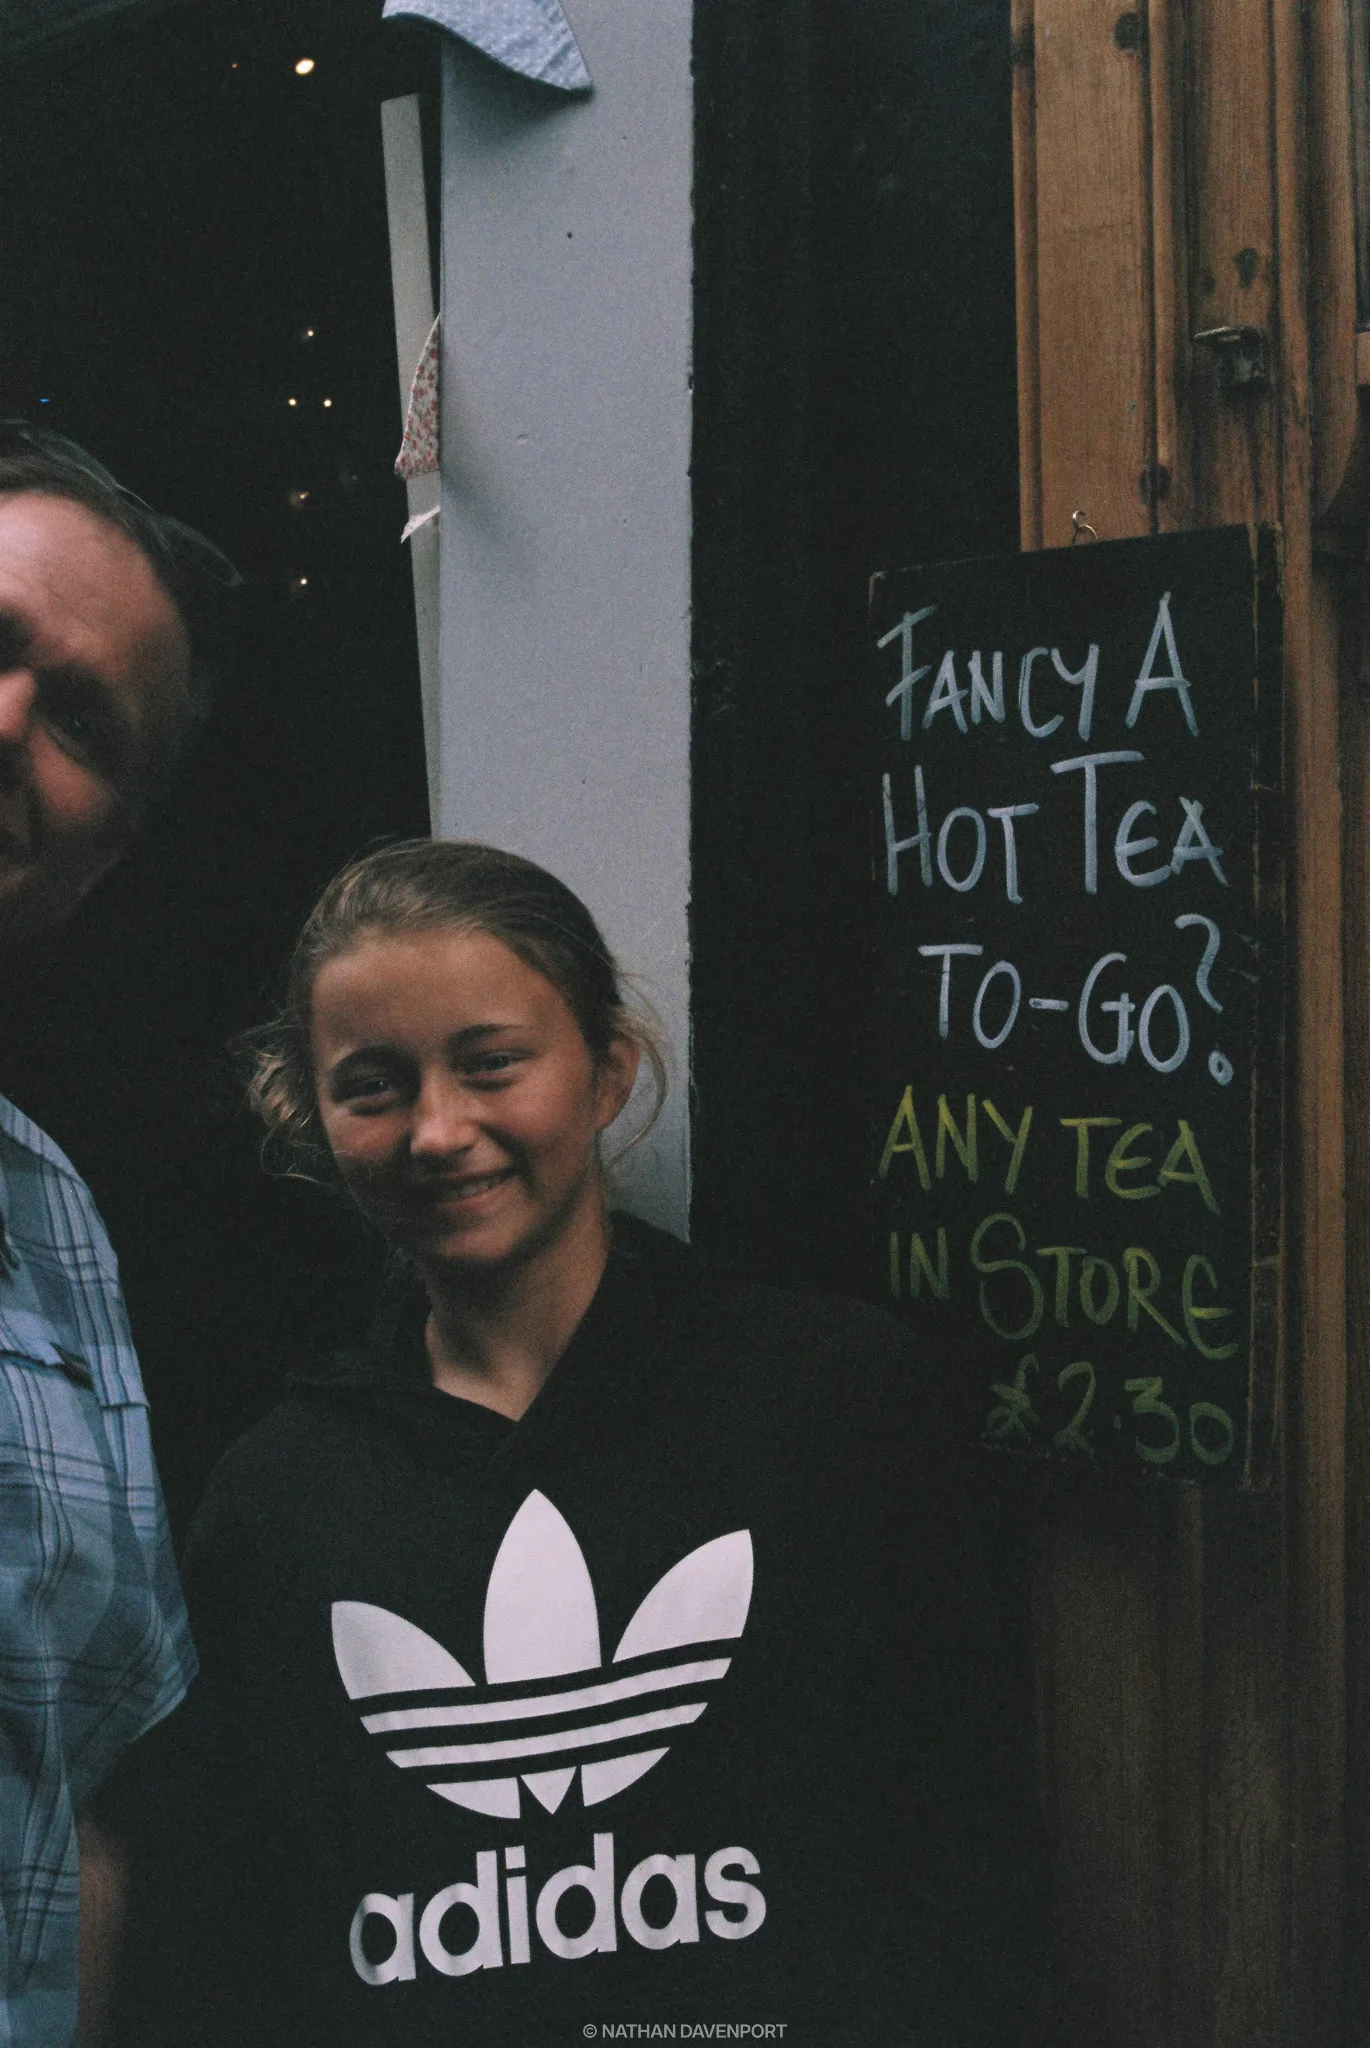 FANCY A
HOT TEA
TO-GO?
ANY TEA
IN STORE
£2.30
adidas
© NATHAN DAVENPORT